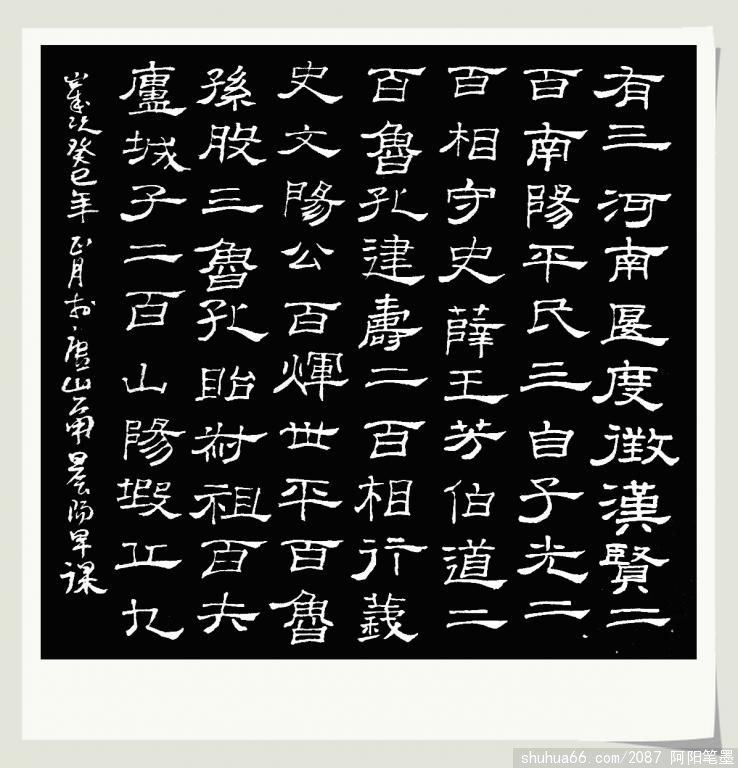 有三河南匽度徵漢賢二
百南陽平氏三自子光二
百相守史薛王芳伯道二
百魯孔建壽二百相行義
史文陽公百煇世平百魯
孫股三魯孔昭叔祖百夫
廬城子二百山陽瑕丘九
歲次癸巳年正月於廬山南晨陽早課
shuhua66.com/2087 阿阳笔墨